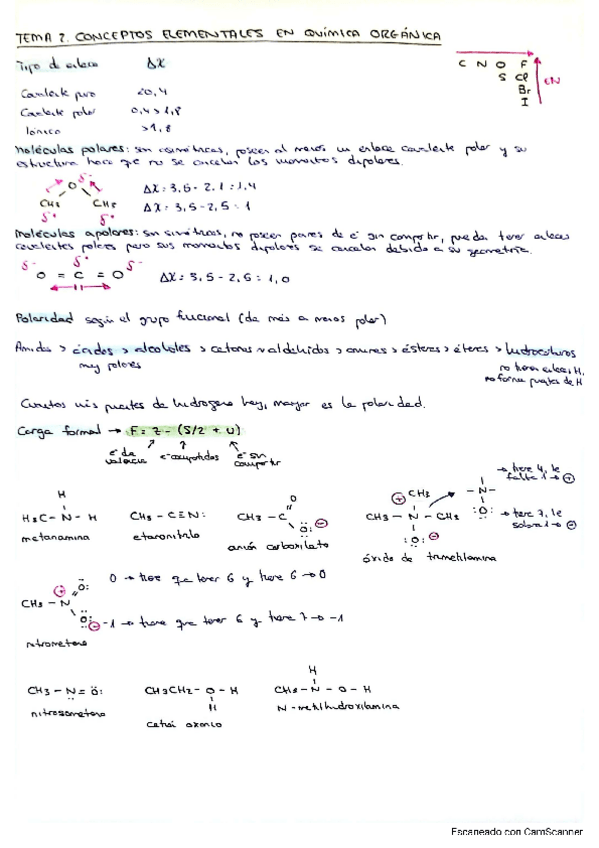 TEMA 2. CONCEPTOS ELEMENTALES EN QUÍMICA ORGÁNICA
Tipo de enlace ΔX
C N O F
S Cl
Br
I
EN
Covalente puro <0,4
Covalente polar 0,4 > 1,8
Iónico >1,8
Moléculas polares: son asimétricas, poseen al menos un enlace covalente polar y su
estructura hace que no se cancelen los momentos dipolares.
δ-
O
CH3 CH3
δ+ δ+
ΔX: 3,5 - 2,1 : 1,4
ΔX: 3,5 - 2,5 : 1
Moléculas apolares: son simétricas, no poseen pares de é sin compartir, pueden tener enlaces
covalentes polares pero sus momentos dipolares se cancelan debido a su geometría.
δ- δ+ δ-
O = C = O
ΔX = 3,5 - 2,5 : 1,0
Polaridad según el grupo funcional (de más a menos polar)
Amidas > ácidos > alcoholes > cetonas y aldehidos > aminas > ésteres > éteres > hidrocarburos
muy polares
no tienen enlaces H,
no forma puentes de H
Cuantos más puentes de hidrógeno hay, mayor es la polaridad.
Carga formal → F = Z - (S/2 + U)
é de valencia
é compartidos
é sin compartir
H
H3C - N - H
metanamina
CH3 - C≡N:
etanonitrilo
O
CH3 - C
:O: ⊖
anión carboxilato
⊕ CH3
CH3 - N - CH3
:O: ⊖
óxido de trimetilamina
- N -
:O:
→ tiene 4, le
falta 1 → ⊕
→ tiene 7, le
sobra 1 → ⊖
⊕ O:
CH3 - N
:O: ⊖
nitrometano
0 → tiene que tener 6 y tiene 6 → 0
-1 → tiene que tener 6 y tiene 7 → -1
CH3 - N = O:
nitrosometano
CH3CH2 - O - H
H
catión oxonio
H
CH3 - N - O - H
N-metilhidroxilamina
Escaneado con CamScanner